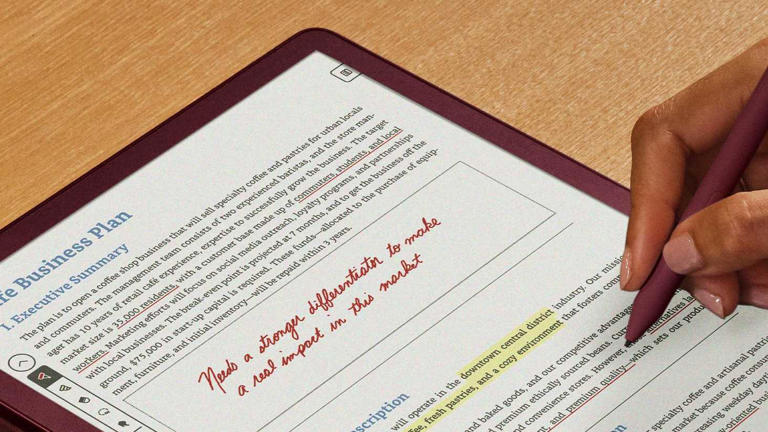 fe Business Plan
1. Executive Summary
The plan is to open a coffee shop business that will sell specialty coffee and pastries for urban locals
and commuters. The management team consists of two experienced baristas, and the store man-
ager has 10 years of retail café experience, expertise to successfully grow the business. The target
market size is 35,000 residents, with a customer base made up of commuters, students, and local
workers. Marketing efforts will focus on social media outreach, loyalty programs, and partnerships
with local businesses. The break-even point is projected at 7 months, and to get the business off the
ground, $75,000 in start-up capital is required. These funds—allocated to the purchase of equip-
ment, furniture, and initial inventory—will be repaid within 3 years.
Needs a stronger differentiator to make
a real impact in this market
scription
will operate in the downtown central district industry. Our missio
fee, fresh pastries, and a cozy environment that fosters con
and baked goods, and our competitive advantage
premium ethically sourced beans. Curr
and convenience stores. However, alternatives la
and premium quality—which sets our produ
specialty coffee and artisanal pastri
market because coffee consum
creasing weekday dayti
oriented busin